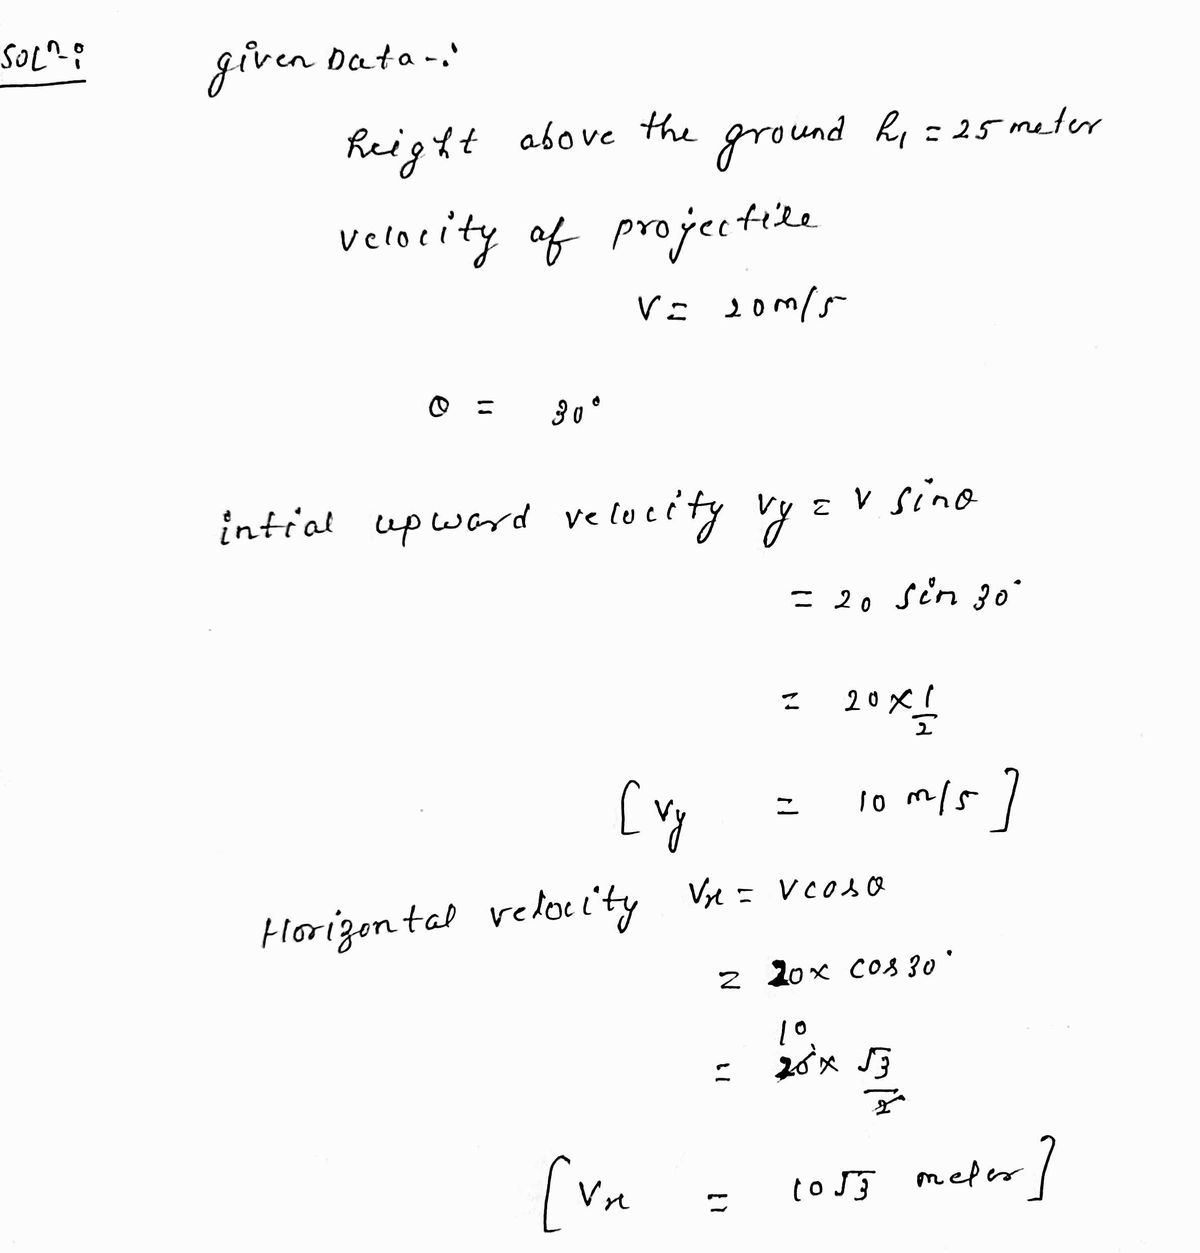 SOLⁿ-:
given Data-:
height above the ground h₁ = 25 meter
velocity of projectile
V = 20 m/s
θ = 30°
intial upward velocity Vy = V sinθ
= 20 sin 30°
= 20 × 1/2
[Vy = 10 m/s]
Horizontal velocity Vx = V cosθ
= 20 × cos 30°
10
= 20 × √3/2
[Vx = 10√3 meter]